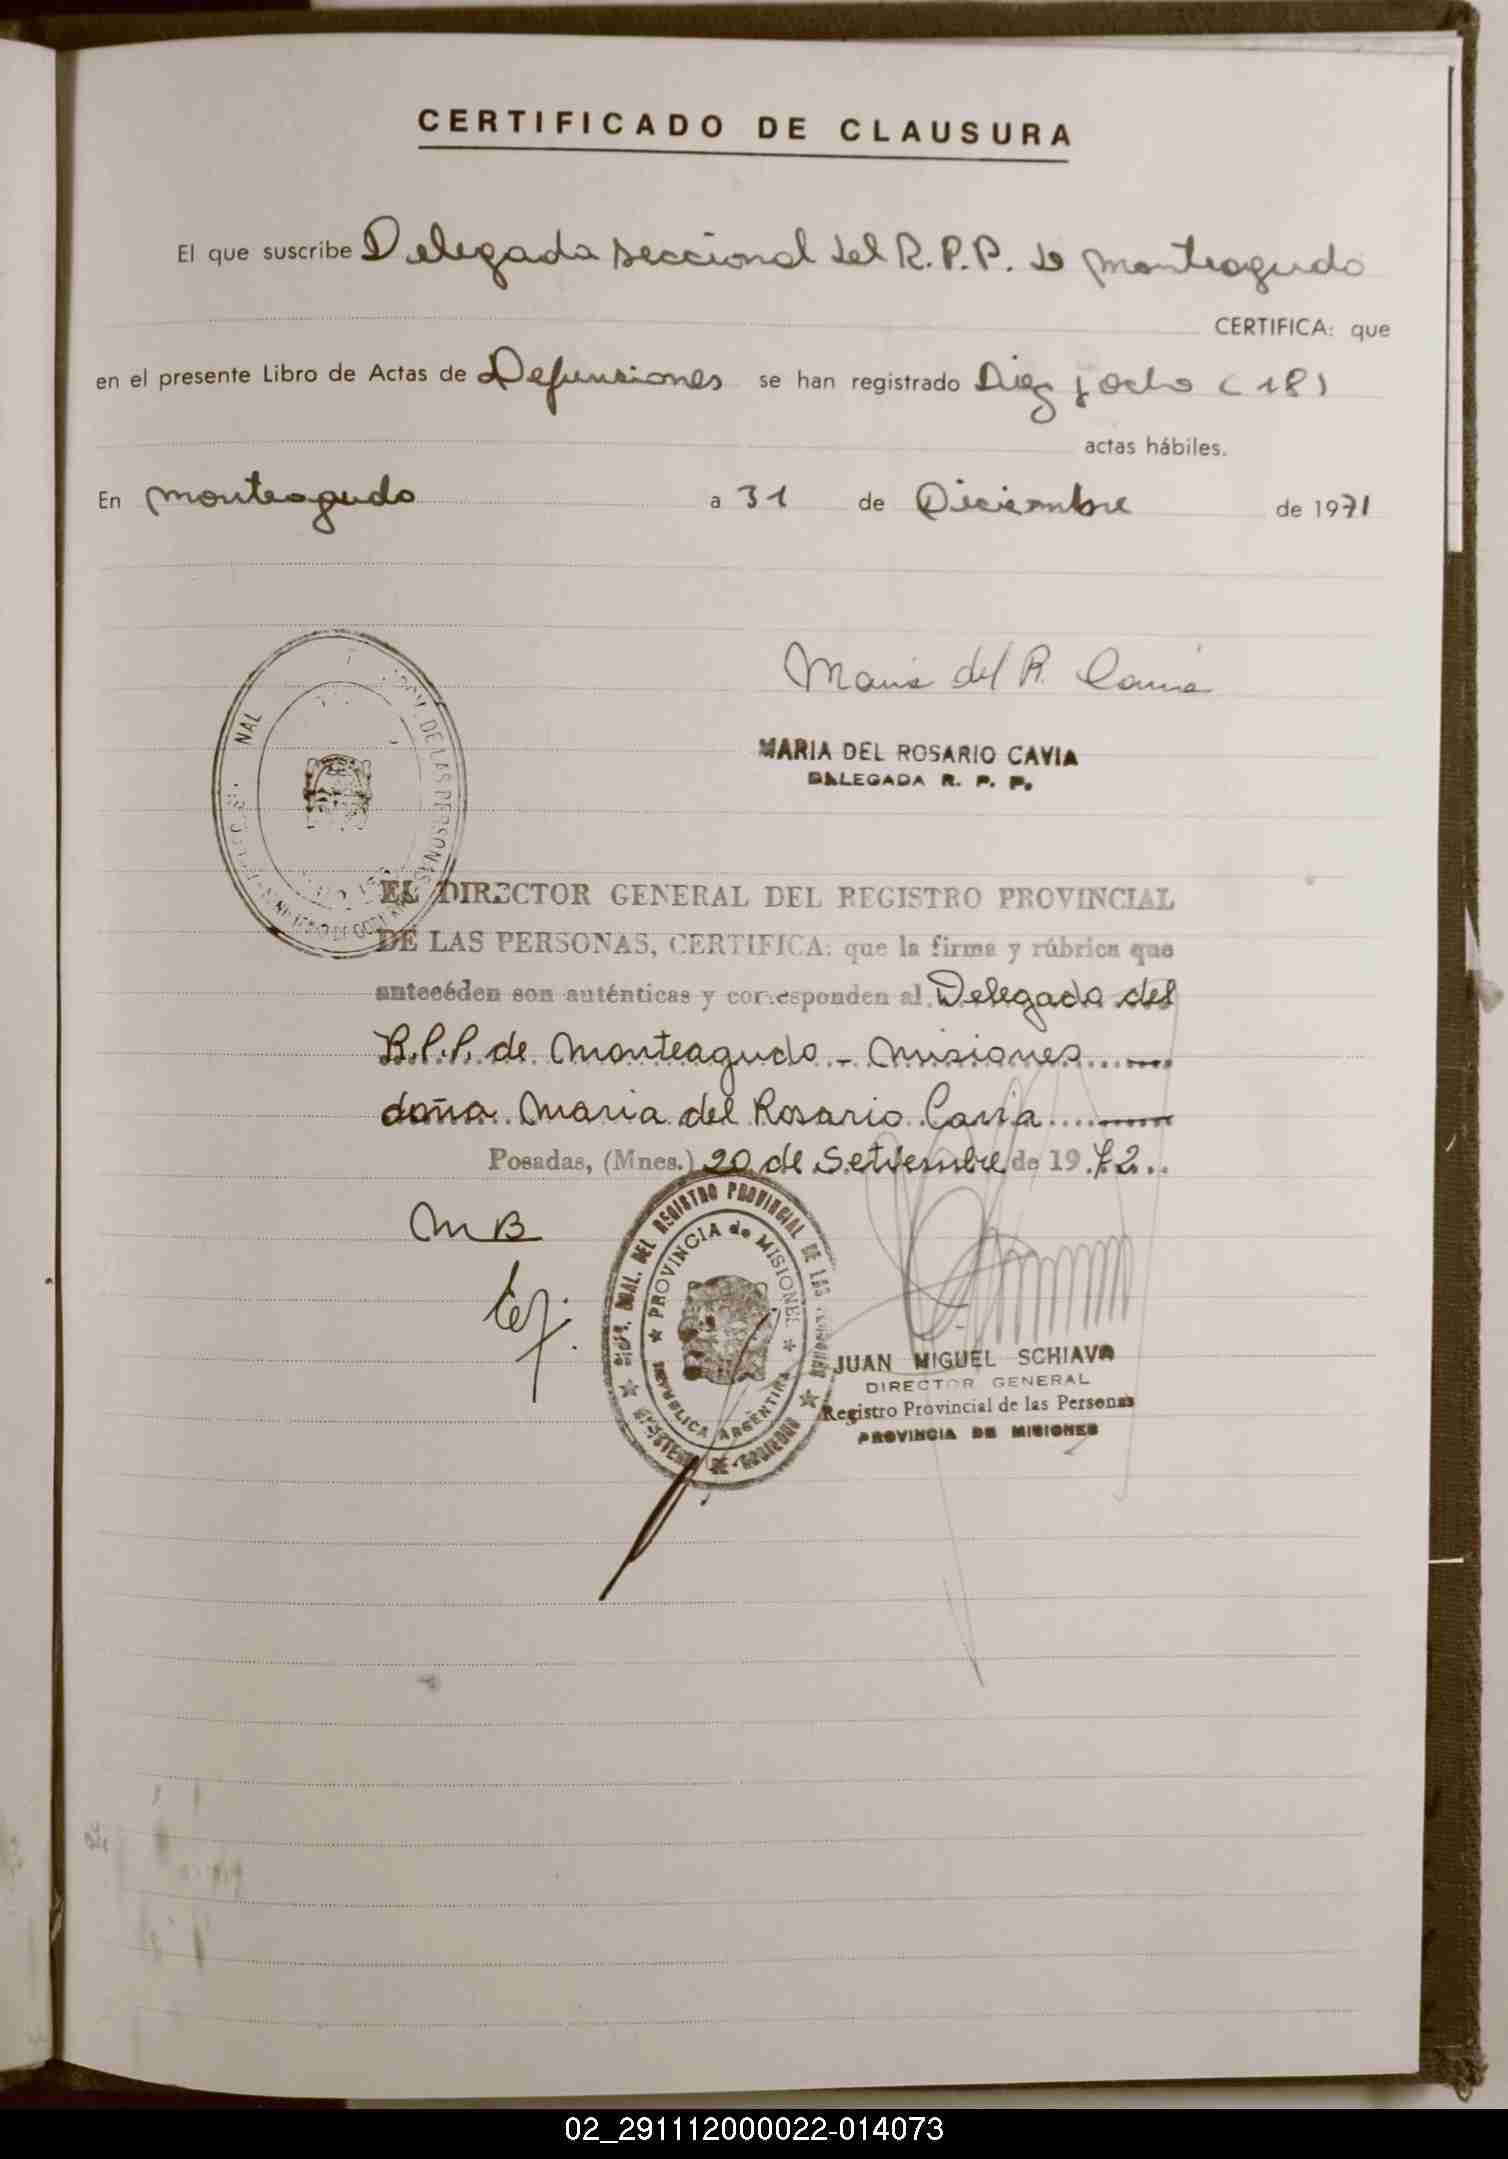 CERTIFICADO DE CLAUSURA
El que suscribe Delegada seccional del R.P.P. de Monteagudo
CERTIFICA: que
en el presente Libro de Actas de Defunciones se han registrado Diez y ocho (18)
actas hábiles.
En Monteagudo a 31 de Diciembre de 1971
Maria del R. Cavia
MARIA DEL ROSARIO CAVIA
DELEGADA R. P. P.
DE LAS PERSONAS
EL DIRECTOR GENERAL DEL REGISTRO PROVINCIAL
DE LAS PERSONAS, CERTIFICA: que la firma y rúbrica que
antecéden son auténticas y corresponden al Delegada del
R.P.P. de Monteagudo - Misiones
doña Maria del Rosario Cavia
Posadas, (Mnes.) 20 de Setiembre de 1972
MB
DEL REGISTRO PROVINCIAL DE LAS PERSONAS
PROVINCIA de MISIONES
REPUBLICA ARGENTINA
JUAN MIGUEL SCHIAVA
DIRECTOR GENERAL
Registro Provincial de las Personas
PROVINCIA DE MISIONES
02_291112000022-014073